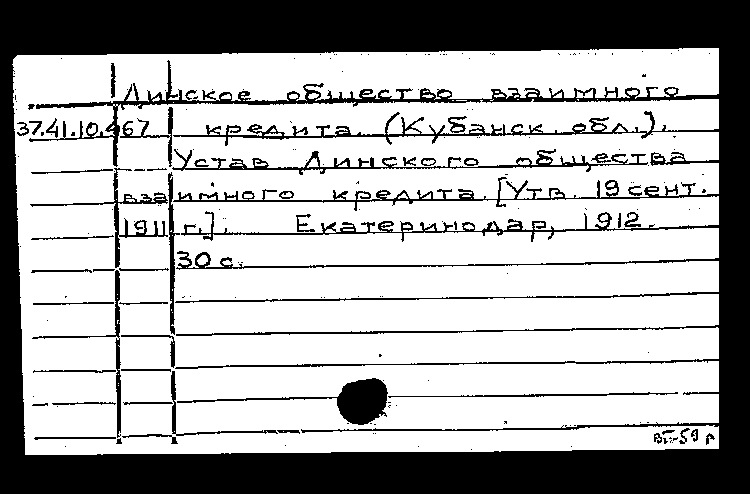 Динское общество взаимного
37.41.10.467 кредита. (Кубанск. обл.).
Устав Динского общества
взаимного кредита. [Утв. 19 сент.
1911 г.]. Екатеринодар, 1912.
30 с.